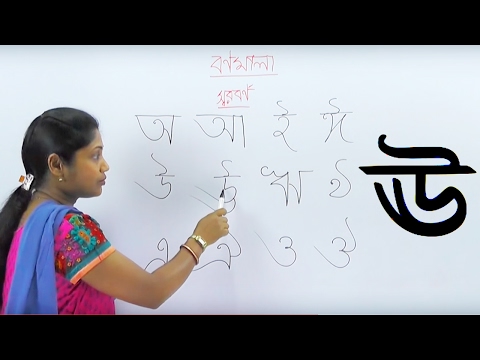 বর্ণমালা
স্বরবর্ণ
অ আ ই ঈ
উ ঊ ঋ ঌ
এ ঐ ও ঔ
ঊ